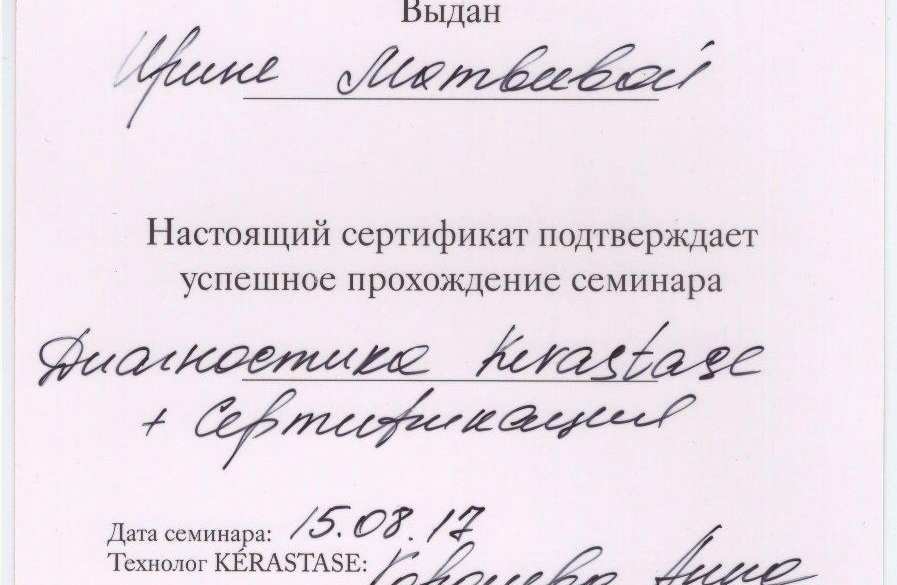 Выдан
Ирине Матвивой
Настоящий сертификат подтверждает
успешное прохождение семинара
Диагностика Kerastase
+ Сертификация
Дата семинара: 15.08.17
Технолог KÉRASTASE: Анна